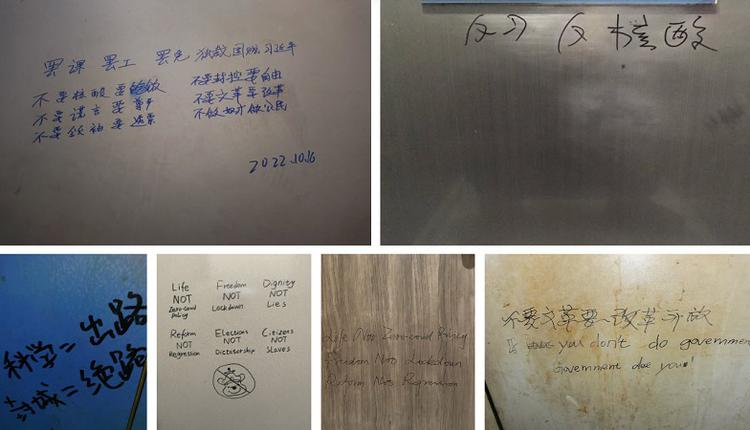 罢课 罢工 罢免独裁国贼习近平
不要核酸要吃饭
不要封控要自由
不要谎言要尊严
不要文革要改革
不要领袖要选票
不做奴才做公民
2022.10.16
反习 反核酸
科学=出路
封城=绝路
Life NOT Zero-covid Policy
Freedom NOT Lockdown
Dignity NOT Lies
Reform NOT Regression
Elections NOT Dictatorship
Citizens NOT Slaves
Life Not Zero-covid Policy
Freedom Not Lockdown
Reform Not Regression
不要文革要改革
If you don't do government
Government does you!